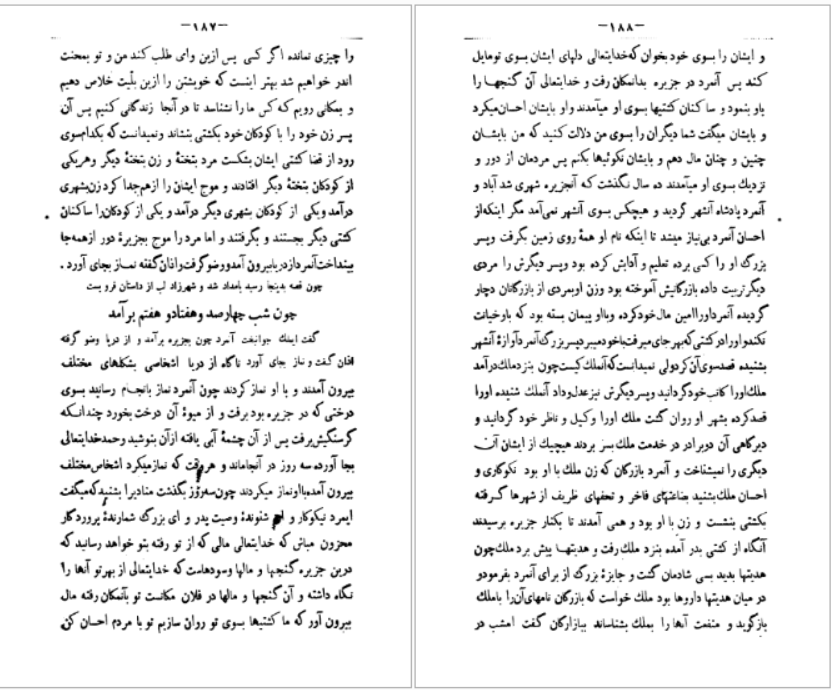 -۱۸۷-
را چیزی نمانده اگر کسی پس ازین وای طلب کند من و تو بمحنت
اندر خواهیم شد بهتر اینست که خویشتن را ازین بلیت خلاص دهیم
و بمکانی رویم که کس ما را نشناسد تا در آنجا زندگانی کنیم پس آن
پسر زن خود را با کودکان خود بکشتی بنشاند ونمیدانست که بکدام‌سوی
رود از قضا کشتی ایشان بشکست مرد بتختهٔ و زن بتختهٔ دیگر وهریکی
از کودکان بتختهٔ دیگر افتادند و موج ایشان را ازهم‌جدا کرد زن‌بشهری
درآمد ویکی از کودکان بشهری دیگر درآمد و یکی از کودکان‌را ساکنان
کشتی دیگر بجستند و بگرفتند و اما مرد را موج بجزیرهٔ دور ازهمه‌جا
بینداخت‌آنمردازدریابیرون آمدووضوگرفت‌واذان‌گفته نماز بجای آورد .
چون قصه بدینجا رسید بامداد شد و شهرزاد لب از داستان فرو بست
چون شب چهارصد وهفتادو هفتم برآمد
گفت ایملك جوانبخت آنمرد چون بجزیره برآمد و از دریا وضو گرفته
اذان گفت و نماز بجای آورد ناگاه از دریا اشخاصی بشکلهای مختلف
بیرون آمدند و با او نماز کردند چون آنمرد نماز بانجام رسانید بسوی
درختی که در جزیره بود برفت و از میوهٔ آن درخت بخورد چندانکه
گرسنگیش برفت پس از آن چشمهٔ آبی یافته ازآن بنوشید وحمدخدایتعالی
بجا آورده سه روز در آنجاماند و هروقت که نمازمیکرد اشخاص‌مختلف
بیرون آمده‌بااونماز میکردند چون‌سه‌روز بگذشت منادیرا بشنیدکه‌میگفت
ایمرد نیکوکار و ای شنوندهٔ وصیت پدر و ای بزرگ شمارندهٔ پروردگار
محزون مباش که خدایتعالی مالی که از تو رفته بتو خواهد رسانید که
درین جزیره گنجها و مالها وسودهاست که خدایتعالی از بهرتو آنها را
نگاه داشته و آن گنجها و مالها در فلان مکانست تو بآنمکان رفته مال
بیرون آور که ما کشتیها بسوی تو روان سازیم تو با مردم احسان کن
-۱۸۸-
و ایشان را بسوی خود بخوان که‌خدایتعالی دلهای ایشان بسوی تومایل
کند پس آنمرد در جزیره بدانمکان رفت و خدایتعالی آن گنجها را
باو بنمود و ساکنان کشتیها بسوی او میآمدند واو بایشان احسان‌میکرد
و بایشان میگفت شما دیگران را بسوی من دلالت کنید که من بایشان
چنین و چنان مال دهم و بایشان نکوئیها بکنم پس مردمان از دور و
نزدیك بسوی او میآمدند ده سال نگذشت که آنجزیره شهری شد آباد و
آنمرد پادشاه آنشهر گردید و هیچکس بسوی آنشهر نمی‌آمد مگر اینکه‌از
احسان آنمرد بی‌نیاز میشد تا اینکه نام او همهٔ روی زمین بگرفت وپسر
بزرگ او را کسی برده تعلیم و آدابش کرده بود وپسر دیگرش را مردی
دیگرتربیت داده بازرگانیش آموخته بود وزن اوبمردی از بازرگانان دچار
گردیده آنمرداورا‌امین مال‌خودکرده وبااو پیمان بسته بود که باوخیانت
نکندواورادرکشتی‌که‌بهرجای‌میرفت‌باخودمیبردپسربزرگ‌آنمردآوازهٔ آنشهر
بشنیده قصدسوی‌آن‌کردولی نمیدانست‌که‌آنملك‌کیست‌چون بنزدملك‌درآمد
ملك‌اورا کاتب خودگردانید وپسردیگرش نیزعدل‌وداد آنملك شنیده اورا
قصدکرده بشهر او روان گشت ملك اورا وکیل و ناظر خود گردانید و
دیرگاهی آن دوبرادر در خدمت ملك بسر بردند هیچیك از ایشان آن
دیگری را نمیشناخت و آنمرد بازرگان که زن ملك با او بود نکوکاری و
احسان ملك بشنید بضاعتهای فاخر و تحفهای ظریف از شهرها گرفته
بکشتی بنشست و زن با او بود و همی آمدند تا بکنار جزیره برسیدند
آنگاه از کشتی بدر آمده بنزد ملك رفت و هدیتها پیش برد ملك‌چون
هدیتها بدید بسی شادمان گشت و جایزهٔ بزرگ از برای آنمرد بفرمودو
در میان هدیتها داروها بود ملك خواست که بازرگان نامهای‌آن‌را باملك
بازگوید و منفعت آنها را بملك بشناساند ببازارگان گفت امشب در